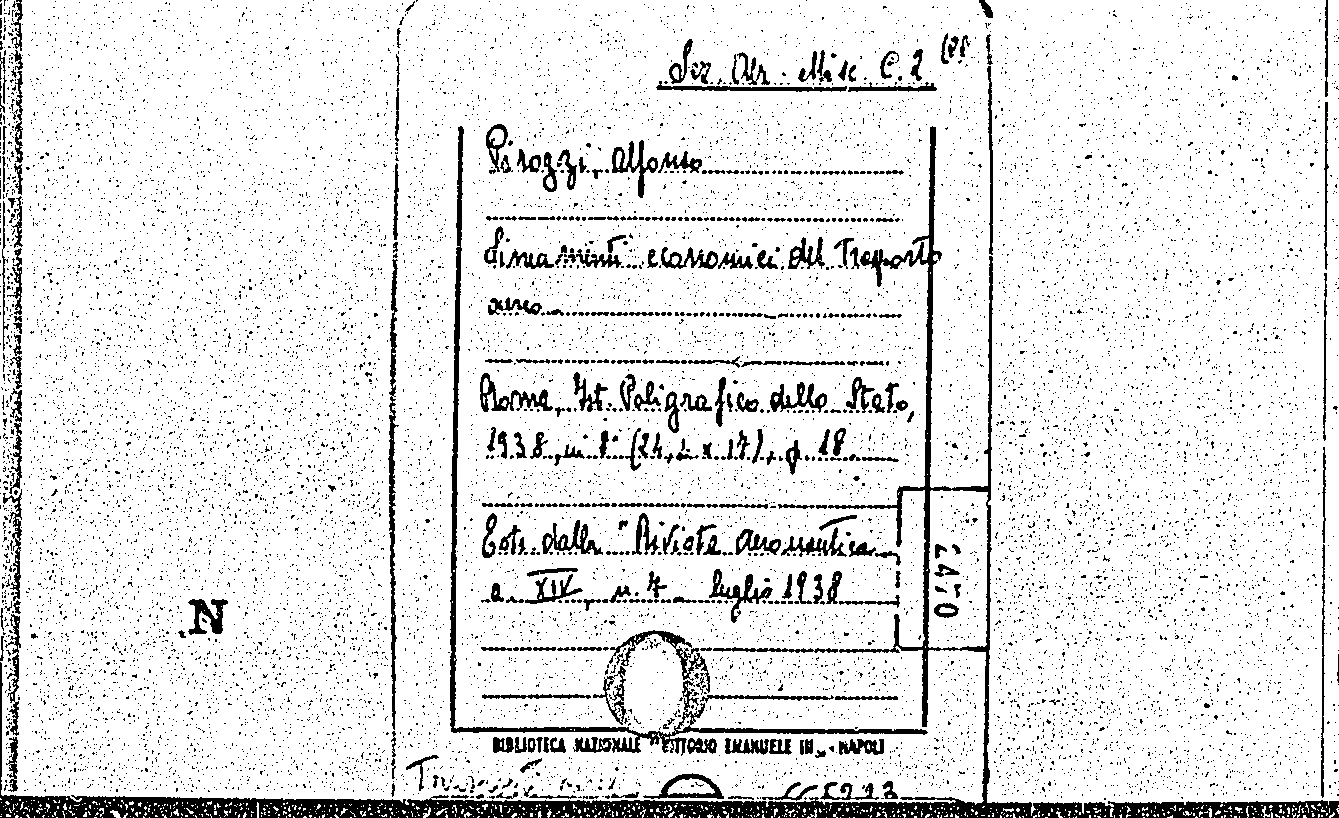 Sez. Aer. Misc. C. 2
Pirozzi, Alfonso
Lineamenti economici del Trasporto
aereo
Roma, Ist. Poligrafico dello Stato,
1938, in 8° (24, x 17), p. 18.
Estr. dalla "Rivista aeronautica
a. XIV, n. 7 - luglio 1938
N
BIBLIOTECA NAZIONALE "VITTORIO EMANUELE III" - NAPOLI